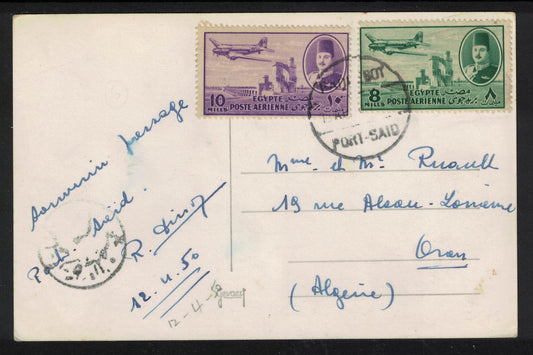 10
MILLS
EGYPTE
POSTE AÉRIENNE
مصر
١٠
8
MILLS
EGYPTE
POSTE AÉRIENNE
مصر
٨
PORT-SAID
Souvenir passage
Port Said.
12.4.50
12-4-50
Mme et Mr Ruault
19 rue Alsace-Lorraine
Oran
(Algérie)